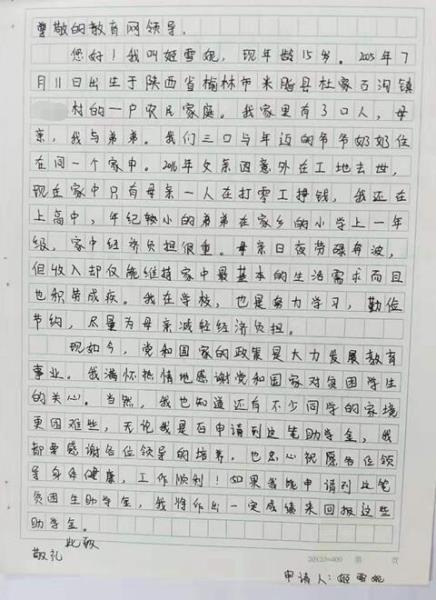 尊敬的教育网领导:
您好!我叫姬雪妮,现年龄15岁。2005年7
月11日出生于陕西省榆林市米脂县杜家石沟镇
村的一户农民家庭。我家里有3口人,母
亲,我与弟弟。我们三口与年迈的爷爷奶奶住
在同一个家中。2016年父亲因意外在工地去世,
现在家中只有母亲一人在打零工挣钱,我还在
上高中,年纪较小的弟弟在家乡的小学上一年
级,家中经济负担很重。母亲日夜劳碌奔波,
但收入却仅能维持家中最基本的生活需求而且
也积劳成疾。我在学校,也是努力学习,勤俭
节约,尽量为母亲减轻经济负担。
现如今,党和国家的政策是大力发展教育
事业。我满怀热情地感谢党和国家对贫困学生
的关心。当然,我也知道还有不少同学的家境
更困难些,无论我是否申请到这笔助学金,我
都要感谢各位领导的培养,也忠心祝愿各位领
导身体健康,工作顺利!如果我能申请到这笔
贫困生助学金,我将作出一定成绩来回报这些
助学金。
此致
敬礼
20×20=400 第 页
申请人:姬雪妮